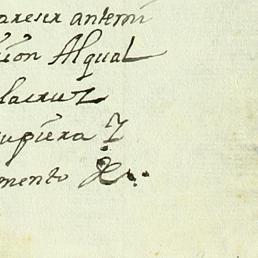 areser antemi
ion Alqual
lacruz
upiera y
mento &c